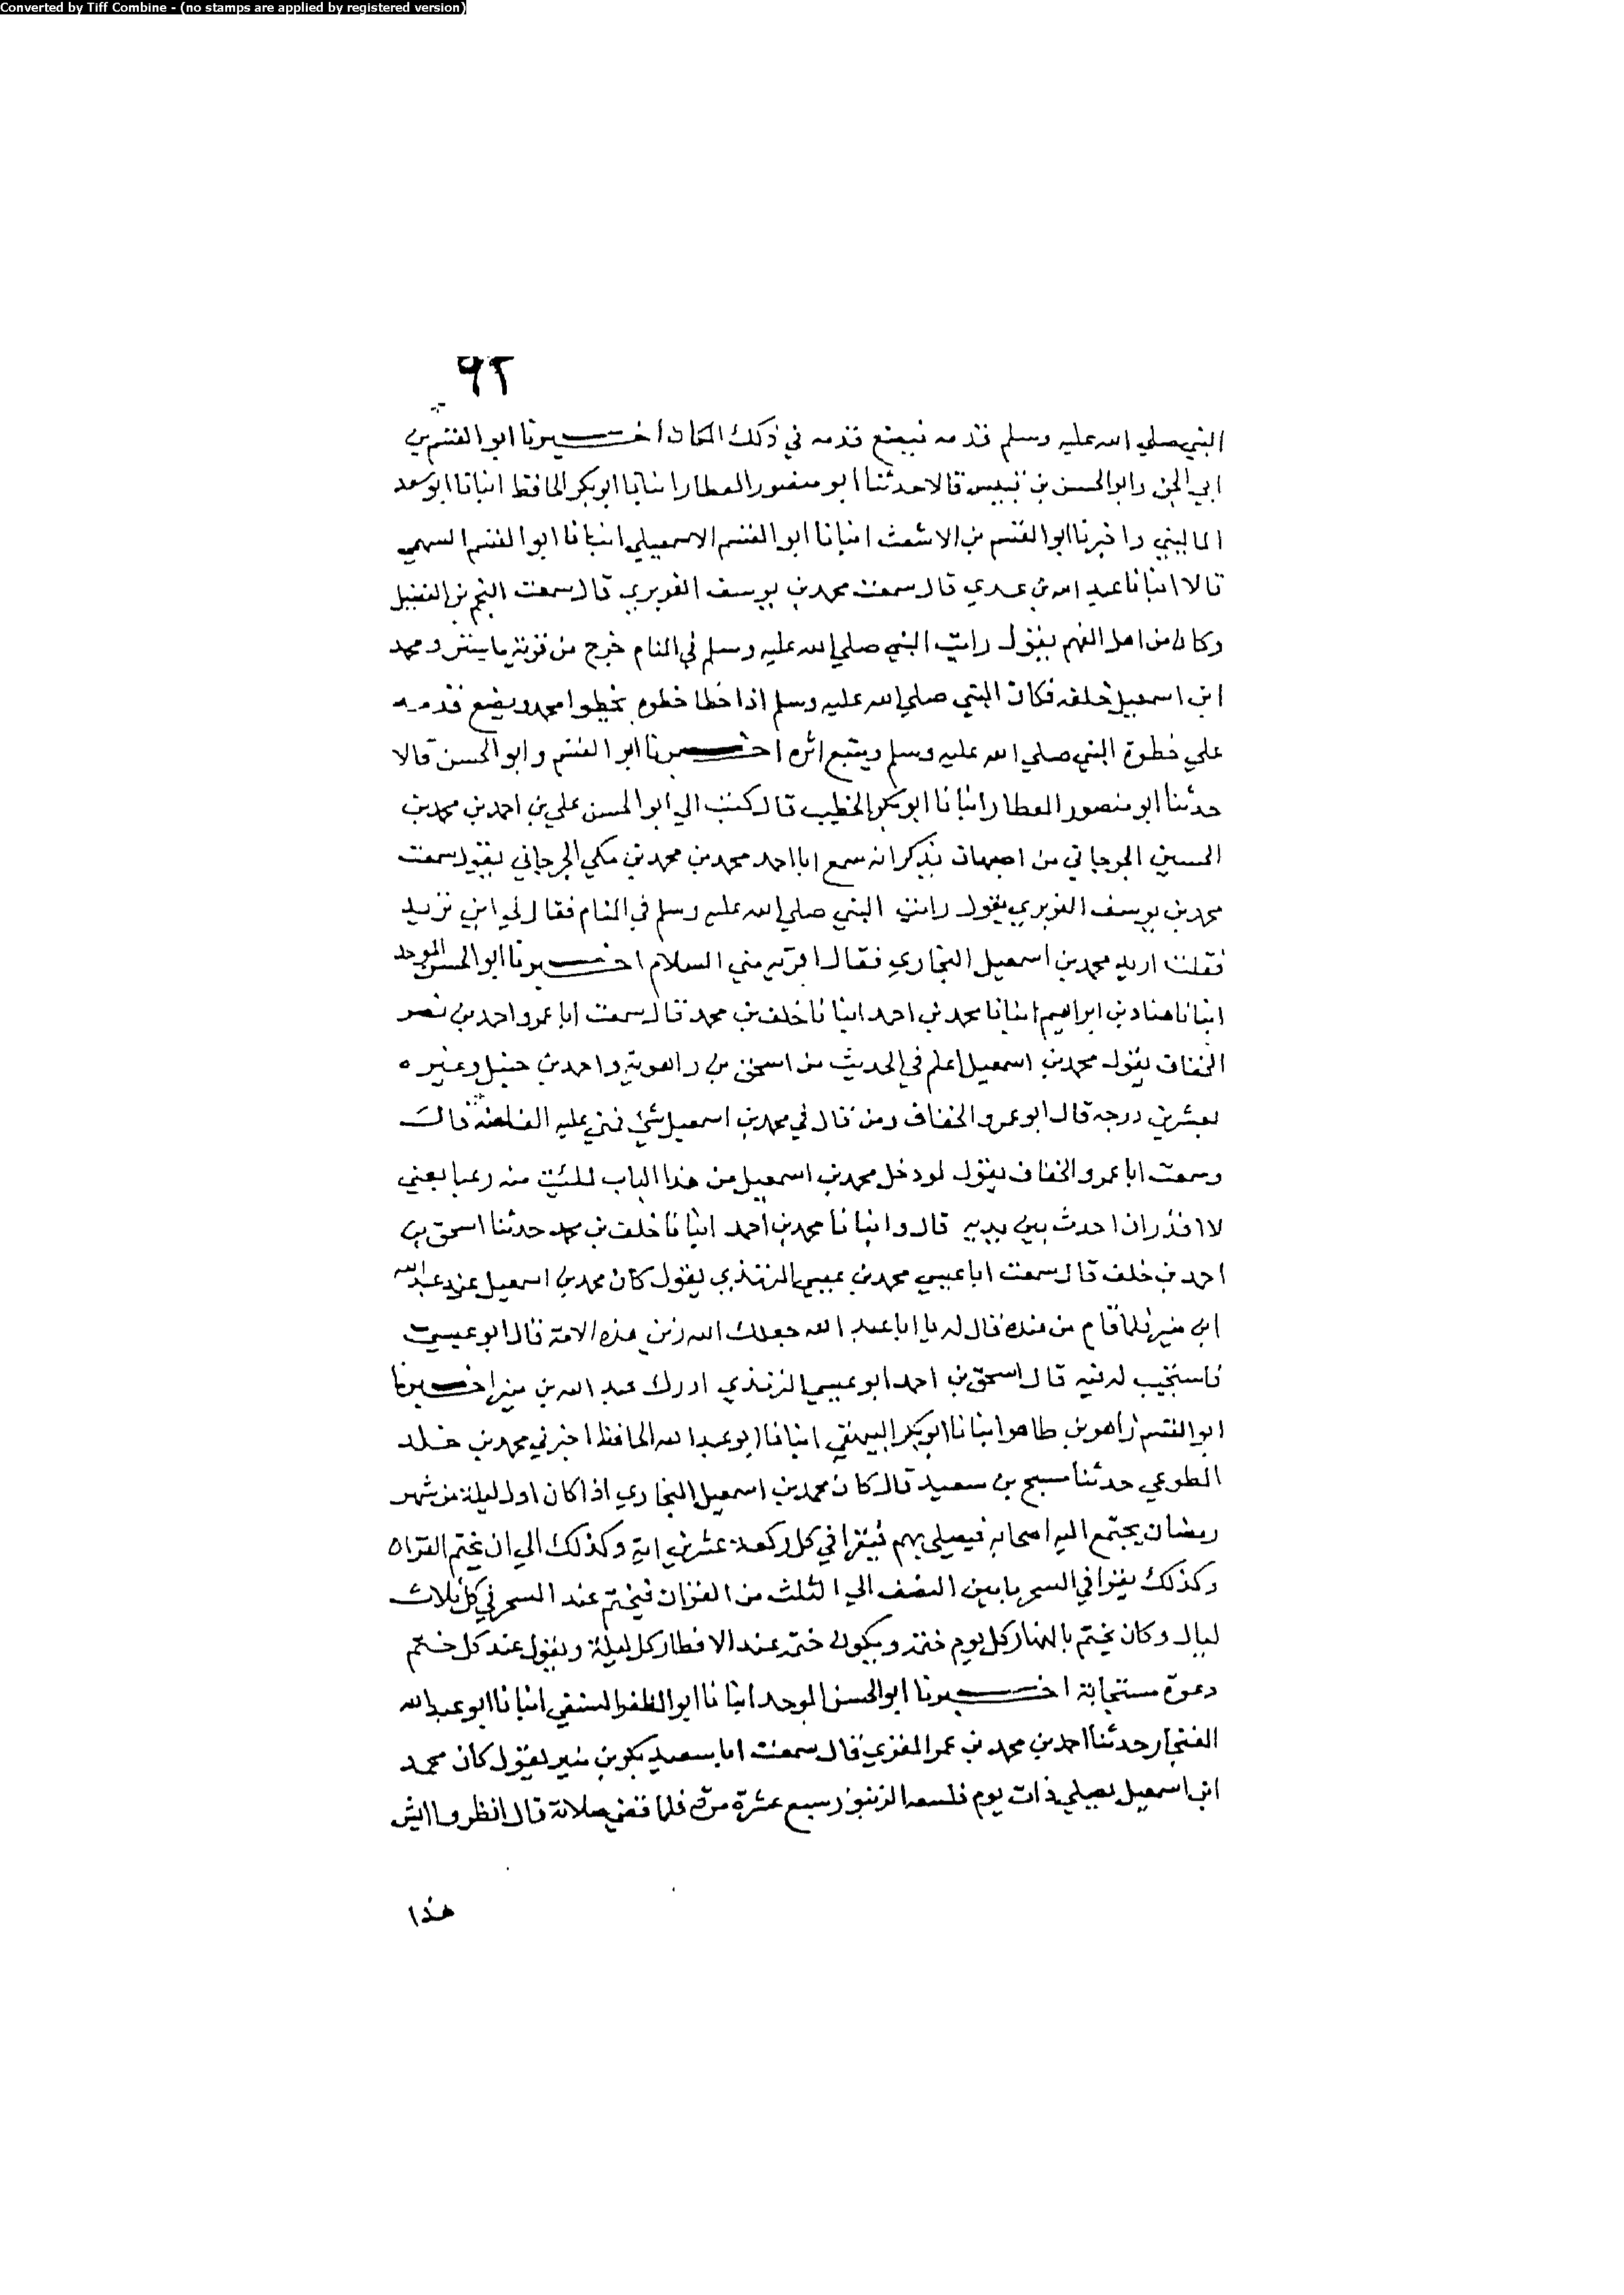 Converted by Tiff Combine - (no stamps are applied by registered version)
٦٢
النبي صلي الله عليه وسلم قدمه فيضع قدمه في ذلك المكان اخبرنا ابو القسم بن
ابي الجن وابو الحسن بن قبيس قالا حدثنا ابو منصور العطار انبانا ابو بكر الحافظ انبانا ابو سعد
الماليني واخبرنا ابو القسم بن الاشعث انبانا ابو القسم الاسمعيلي انبانا ابو القسم السهمي
قالا انبانا عبد الله بن عدي قال سمعت محمد بن يوسف الفربري قال سمعت النجم بن الفضيل
وكان من اهل الفهم يقول رايت النبي صلي الله عليه وسلم في المنام خرج من قرية ماستر ومحمد
ابن اسمعيل خلفه فكان النبي صلي الله عليه وسلم اذا خطا خطوه يخطوا محمد ويضع قدمه
علي خطوة النبي صلي الله عليه وسلم ويتبع اثره اخبرنا ابو القسم وابو الحسن قالا
حدثنا ابو منصور العطار انبانا ابو بكر الخطيب قال كتب الي ابو الحسن علي بن احمد بن محمد بن
الحسين الجرجاني من اصبهان يذكر انه سمع ابا احمد محمد بن محمد بن مكي الجرجاني يقول سمعت
محمد بن يوسف الفربري يقول رايت النبي صلي الله عليه وسلم في المنام فقال لي اين تريد
فقلت اريد محمد بن اسمعيل البخاري فقال اقريه مني السلام اخبرنا ابو الحسن الموحد
انبانا هناد بن ابراهيم انبانا محمد بن احمد انبانا خلف بن محمد قال سمعت ابا عمرو احمد بن نصر
الخفاف يقول محمد بن اسمعيل اعلم في الحديث من اسحق بن راهوية واحمد بن حنبل وغيره
بعشرين درجه قال ابو عمرو الخفاف ومن قال في محمد بن اسمعيل شي فمني عليه الف لعنه قال
وسمعت ابا عمرو الخفاف يقول لو دخل محمد بن اسمعيل من هذا الباب لملئت منه رعبا يعني
لا اقدر ان احدث بين يديه قال وانبانا محمد بن احمد انبانا خلف بن محمد حدثنا اسحق بن
احمد بن خلف قال سمعت ابا عيسي محمد بن عيسي الترمذي يقول كان محمد بن اسمعيل عند عبد الله
ابن منير فلما قام من عنده قال له يا ابا عبد الله جعلك الله زين هذه الامة قال ابو عيسي
فاستجيب له فيه قال اسحق بن احمد ابو عيسي الترمذي ادرك عبد الله بن منير اخبرنا
ابو القسم زاهر بن طاهر انبانا ابو بكر البيهقي انبانا ابو عبد الله الحافظ اخبرني محمد بن خلد
المطوعي حدثنا مسبح بن سعيد قال كان محمد بن اسمعيل البخاري اذا كان اول ليلة من شهر
رمضان يجتمع اليه اصحابه فيصلي بهم فيقرا في كل ركعة عشرين اية وكذلك الي ان يختم القران
وكذلك يقرا في السحر ما بين النصف الي الثلث من القران فيختم عند السحر في كل ثلاث
ليال وكان يختم بالنهار كل يوم ختمة ويكون ختمه عند الافطار كل ليلة ويقول عند كل ختم
دعوة مستجابة اخبرنا ابو الحسن الموحد انبانا ابو المظفر النسفي انبانا ابو عبد الله
الغنجار حدثنا احمد بن محمد بن عمر المقري قال سمعت ابا سعيد بكر بن منير يقول كان محمد
ابن اسمعيل يصلي ذات يوم فلسعه الزنبور سبع عشرة مرة فلما قضي صلاته قال انظروا ايش
هذا